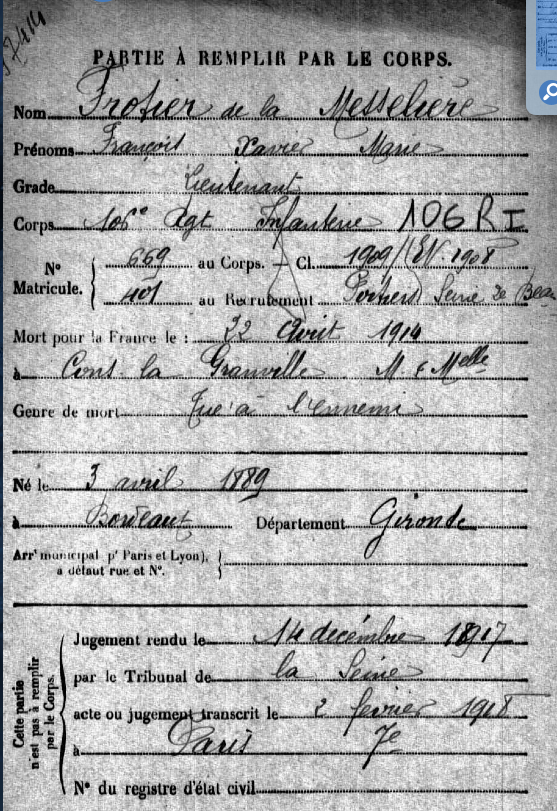 PARTIE À REMPLIR PAR LE CORPS.
Nom Frotier de la Messelière
Prénoms François Xavier Marie
Grade Lieutenant
Corps 106e Rgt Infanterie 106 RI
N° Matricule. { 669 au Corps. — Cl. 1909 / EV. 1908
401 au Recrutement Poitiers Seine
Mort pour la France le : 22 Août 1914
à Cons la Granville M. & Melle
Genre de mort Tué à l'ennemi
Né le 3 avril 1889
à Bordeaux Département Gironde
Arrt municipal (pr Paris et Lyon), à défaut rue et N°. }
Cette partie n'est pas à remplir par le Corps. { Jugement rendu le 14 décembre 1917
par le Tribunal de la Seine
acte ou jugement transcrit le 2 février 1918
à Paris 7e
N° du registre d'état civil